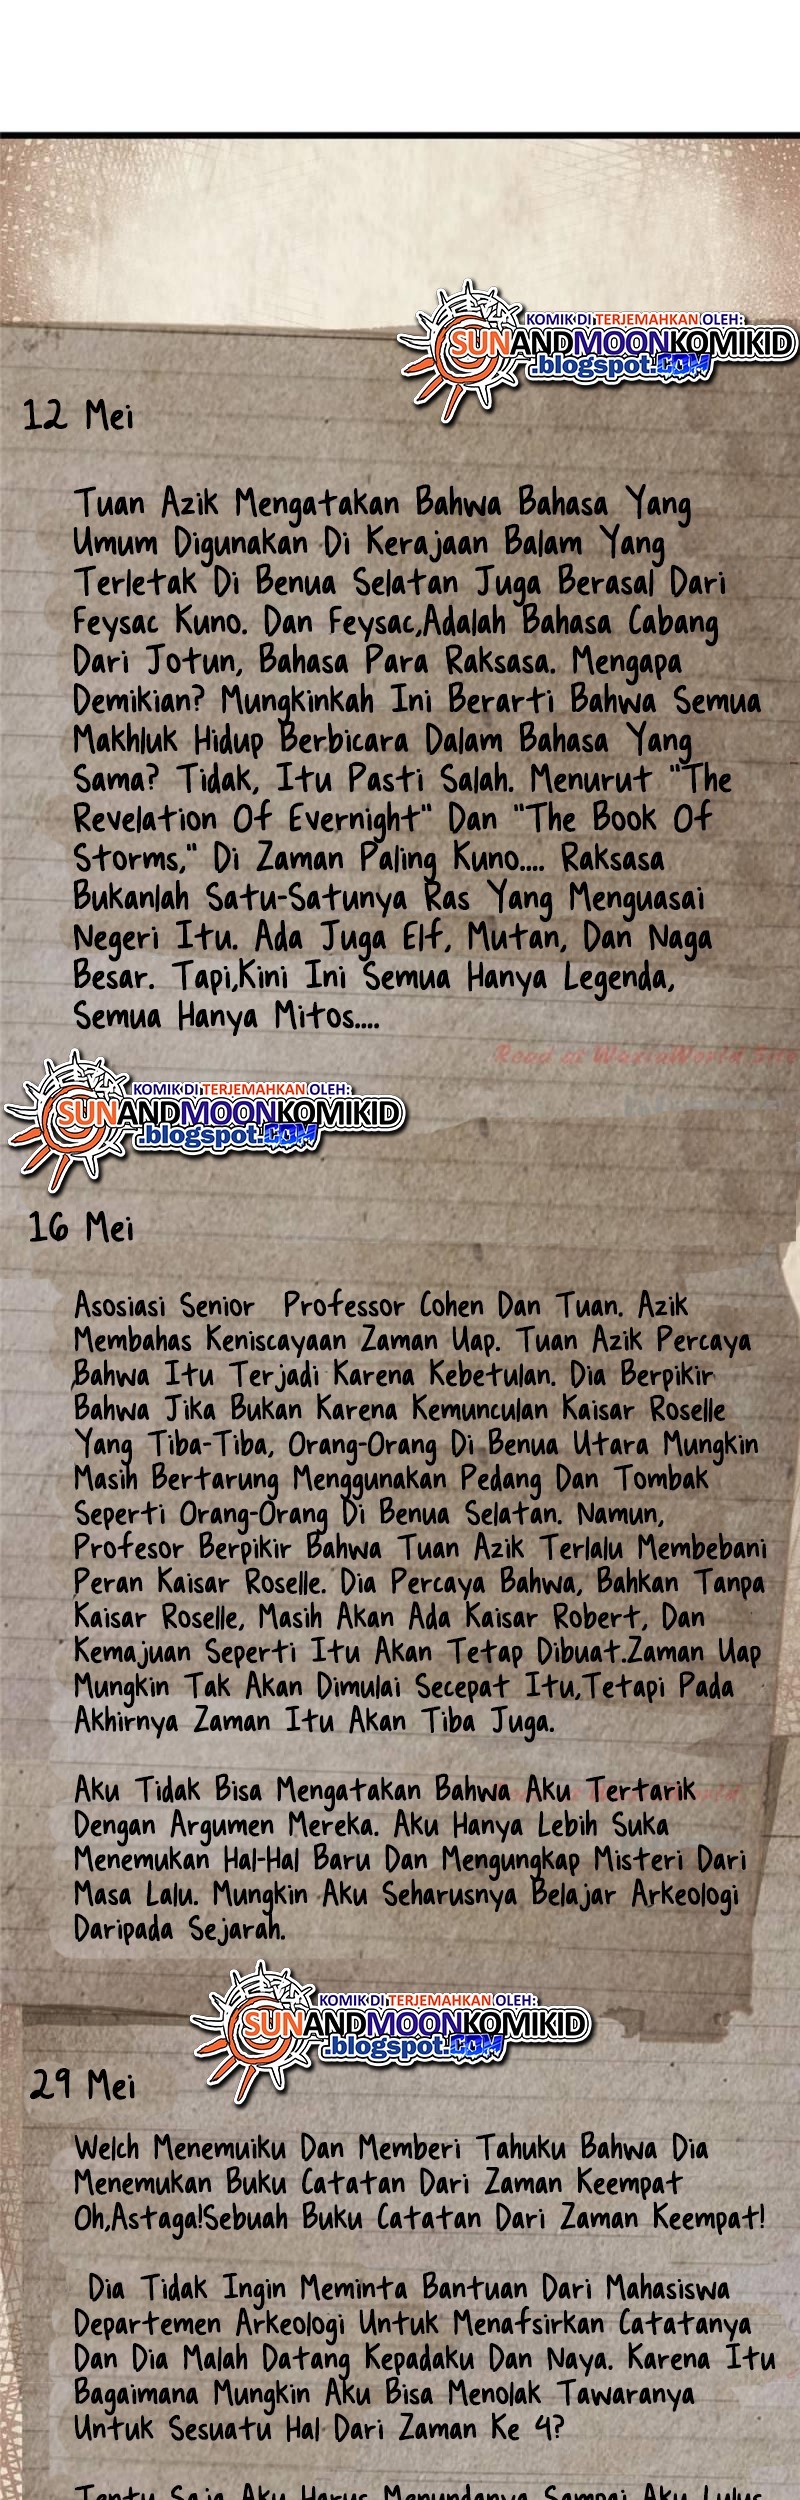 KOMIK DI TERJEMAHKAN OLEH:
SUNANDMOONKOMIKID
.blogspot.com
12 Mei
Tuan Azik Mengatakan Bahwa Bahasa Yang
Umum Digunakan Di Kerajaan Balam Yang
Terletak Di Benua Selatan Juga Berasal Dari
Feysac Kuno. Dan Feysac,Adalah Bahasa Cabang
Dari Jotun, Bahasa Para Raksasa. Mengapa
Demikian? Mungkinkah Ini Berarti Bahwa Semua
Makhluk Hidup Berbicara Dalam Bahasa Yang
Sama? Tidak, Itu Pasti Salah. Menurut "The
Revelation Of Evernight" Dan "The Book Of
Storms," Di Zaman Paling Kuno.... Raksasa
Bukanlah Satu-Satunya Ras Yang Menguasai
Negeri Itu. Ada Juga Elf, Mutan, Dan Naga
Besar. Tapi,Kini Ini Semua Hanya Legenda,
Semua Hanya Mitos....
Read at WuxiaWorld.Site
KOMIK DI TERJEMAHKAN OLEH:
SUNANDMOONKOMIKID
.blogspot.com
16 Mei
Asosiasi Senior Professor Cohen Dan Tuan. Azik
Membahas Keniscayaan Zaman Uap. Tuan Azik Percaya
Bahwa Itu Terjadi Karena Kebetulan. Dia Berpikir
Bahwa Jika Bukan Karena Kemunculan Kaisar Roselle
Yang Tiba-Tiba, Orang-Orang Di Benua Utara Mungkin
Masih Bertarung Menggunakan Pedang Dan Tombak
Seperti Orang-Orang Di Benua Selatan. Namun,
Profesor Berpikir Bahwa Tuan Azik Terlalu Membebani
Peran Kaisar Roselle. Dia Percaya Bahwa, Bahkan Tanpa
Kaisar Roselle, Masih Akan Ada Kaisar Robert, Dan
Kemajuan Seperti Itu Akan Tetap Dibuat.Zaman Uap
Mungkin Tak Akan Dimulai Secepat Itu,Tetapi Pada
Akhirnya Zaman Itu Akan Tiba Juga.
Aku Tidak Bisa Mengatakan Bahwa Aku Tertarik
Dengan Argumen Mereka. Aku Hanya Lebih Suka
Menemukan Hal-Hal Baru Dan Mengungkap Misteri Dari
Masa Lalu. Mungkin Aku Seharusnya Belajar Arkeologi
Daripada Sejarah.
KOMIK DI TERJEMAHKAN OLEH:
SUNANDMOONKOMIKID
.blogspot.com
29 Mei
Welch Menemuiku Dan Memberi Tahuku Bahwa Dia
Menemukan Buku Catatan Dari Zaman Keempat
Oh,Astaga!Sebuah Buku Catatan Dari Zaman Keempat!
Dia Tidak Ingin Meminta Bantuan Dari Mahasiswa
Departemen Arkeologi Untuk Menafsirkan Catatanya
Dan Dia Malah Datang Kepadaku Dan Naya. Karena Itu
Bagaimana Mungkin Aku Bisa Menolak Tawaranya
Untuk Sesuatu Hal Dari Zaman Ke 4?
Tentu Saja Aku Harus Menundanya Sampai Aku Lulus